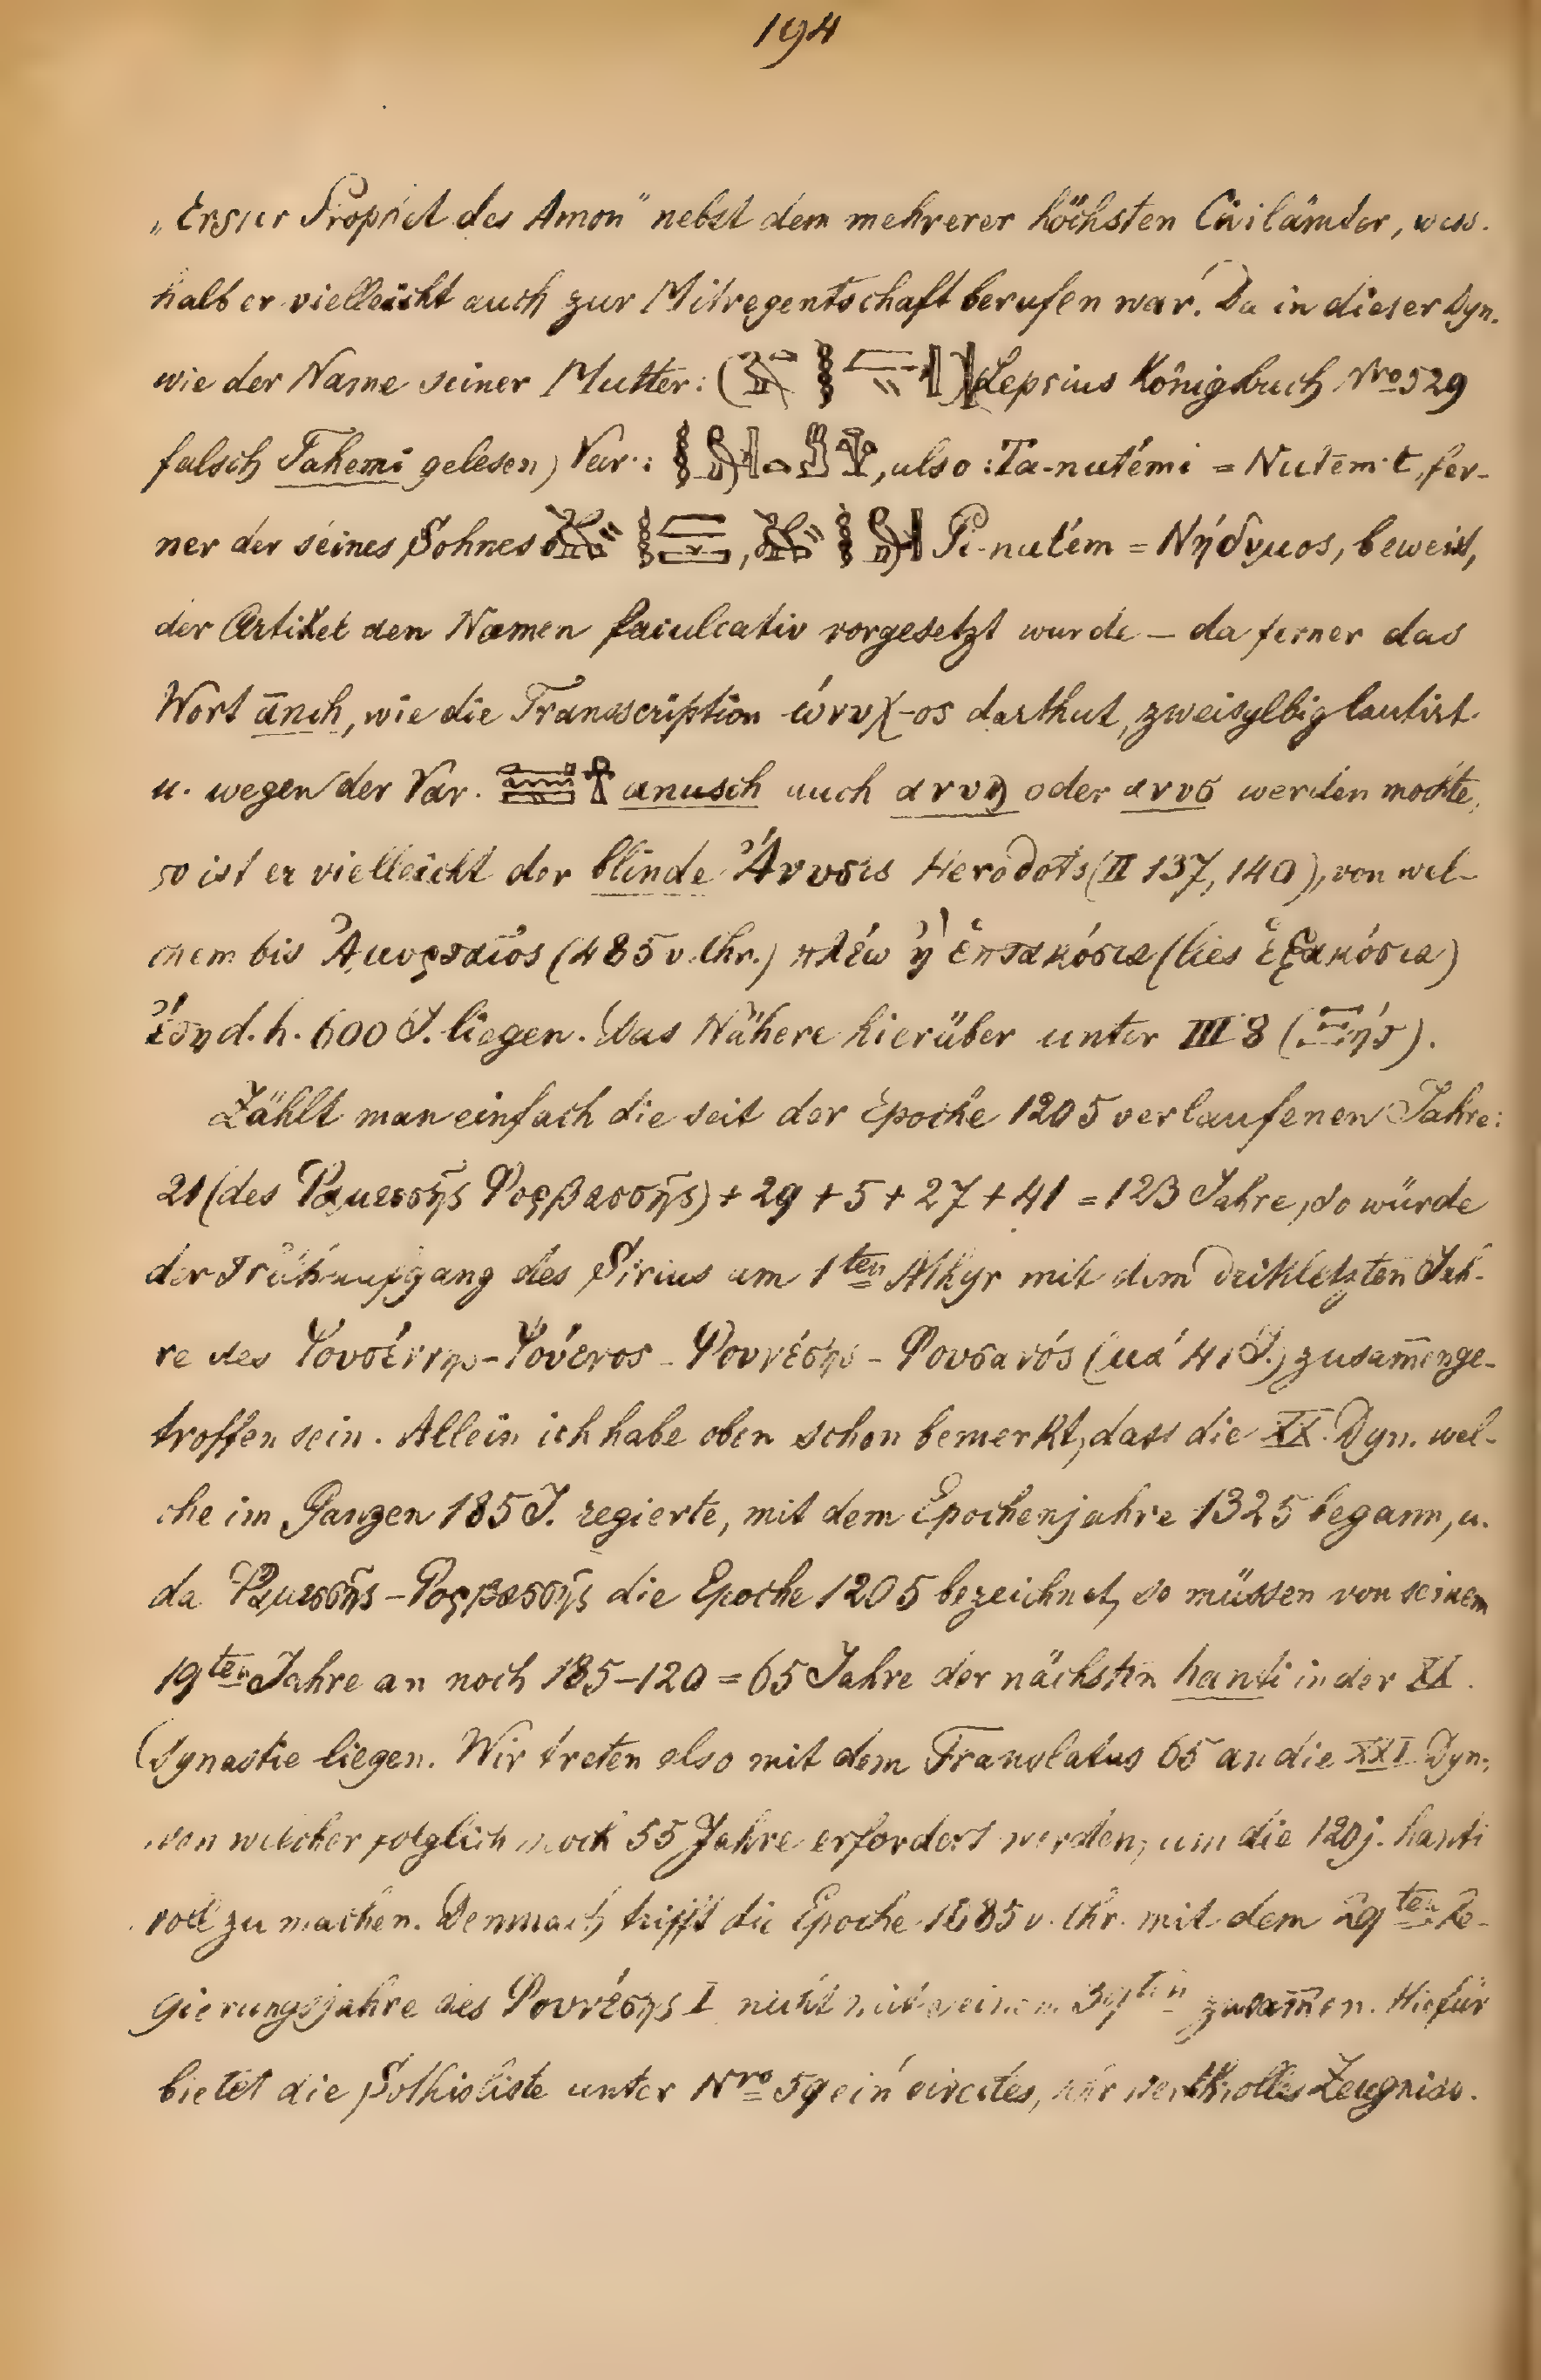 194
„Erster Prophet des Amon“ nebst dem mehrerer höchsten Civilämter, wess-
halb er vielleicht auch zur Mitregentschaft berufen war. Da in dieser Dyn.
wie der Name seiner Mutter: ( ) Lepsius Königsbuch Nro 529
falsch Tahemi gelesen) Var.: , also: Ta-nutémi = Nutem·t, fer-
ner der seines Sohnes , Pi-nutém = Νήδυμος, beweist,
der Artikel den Namen facultativ vorgesetzt wurde – da ferner das
Wort ānch, wie die Transscription ώνυχ-ος darthut, zweisylbig lautirt
u. wegen der Var. ☥ anusch auch ανυϣ oder ανυσ werden mochte,
so ist er vielleicht der blinde Ἄνυσις Herodots (II 137, 140), von wel-
chem bis Ἀμυρταῖος (485 v. Chr.) πλέω ἢ ἑπτακόσια (lies ἑξακόσια)
ἔτη d. h. 600 J. liegen. Das Nähere hierüber unter III 8 ( ).
Zählt man einfach die seit der Epoche 1205 verlaufenen Jahre:
21 (des Ραμεσσῆς Ρυρβασσῆς) + 29 + 5 + 27 + 41 = 123 Jahre, so würde
der Frühaufgang des Sirius am 1ten Athyr mit dem drittletzten Jah-
re des (μά 41 J.) zusam̄enge-
troffen sein. Allein ich habe oben schon bemerkt, dass die XX. Dyn. wel-
che im Ganzen 185 J. regierte, mit dem Epochenjahre 1325 begann, u.
da die Epoche 1205 bezeichnet, so müssen von seinem
19ten Jahre an noch 185–120 = 65 Jahre der nächsten hanti in der XX.
Dynastie liegen. Wir treten also mit dem Translatus 65 an die XXI. Dyn.,
von welcher folglich noch 55 Jahre erfordert werden, um die 120j. hanti
voll zu machen. Demnach trifft die Epoche 1085 v. Chr. mit dem 29ten Re-
gierungsjahre des I nicht mit seinem zusam̄en. Hiefür
bietet die Sothisliste unter Nro 59 ein directes, sehr werthvolles Zeugniss.